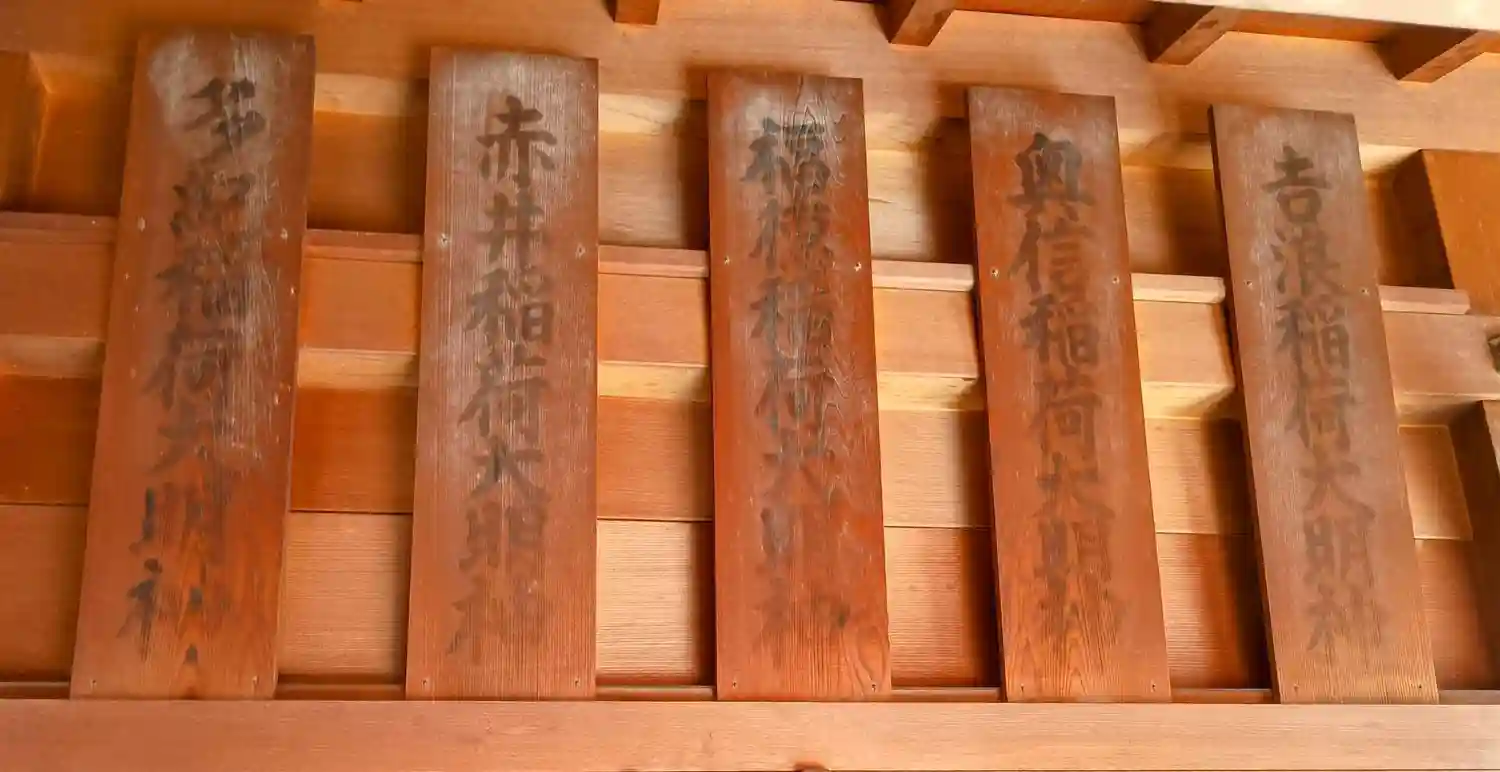 吉浪稲荷大明神
奥信稲荷大明神
福稲荷大明神
赤井稲荷大明神
多稲荷大明神